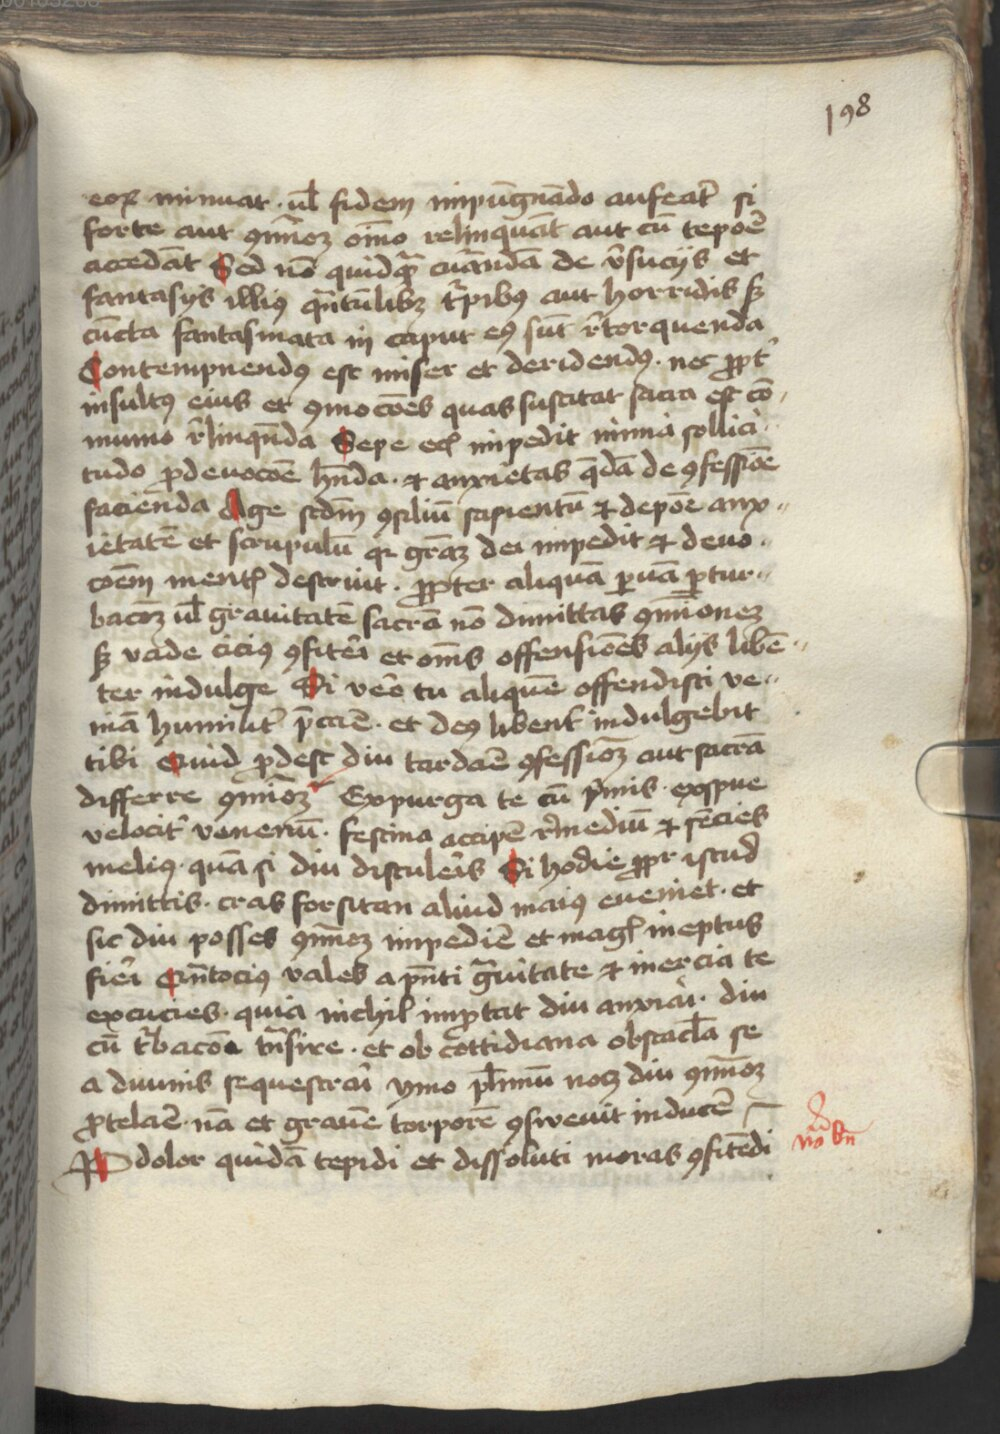 198
eoꝝ minuat · ul̄ fidem impūgnādo aufeat᷑ si
forte aut ꝯmūioꝫ om̄ino relinquāt aut cū tepoē
accedāt Sed nō quidqᷓ curandā de v̓sucijs et
fantasijs illiꝰ qᷓntūlibꝫ t᷑pibꝰ aut horridis sꝫ
cūcta fantasmata in caput eiꝰ sūt r̓torquenda
Contempnendꝰ est miser et deridendꝰ · nec ꝓpt᷑
insultꝰ eius et ꝯmocōes quas suscitat sacra est cō
munio r̓linqn̄da Sepe ecī impedit nimia sollici
tudo ꝓ deuocōe hn̄da · ⁊ anxietas qᷓdā de ꝯfessiōe
facienda Age scd̄m ꝯsiliū sapientū ⁊ depōe anx
ietatē et scrupulū qꝛ grāꝫ dei impedit ⁊ deuo
coēm mentꝭ destruit · ꝓpter aliquā ꝑuā ꝑtur
bacōꝫ ul̄ grauitatē sacrā nō dimittas ꝯmūionez
sꝫ vade ciciꝰ ꝯfiteri et om̄s offensiōes alijs libē
ter indulge Si vēo tu aliquē offendisti ve
niā humilit᷑ p̄care · et deꝰ libent᷑ indulgebit
tibi Quid ꝓdest diu tardaē ꝯfessioꝫ aut sacrā
differre ꝯmūioꝫ Expurga te cū p̓mis · exspue
velocit᷑ venenū · festina accipē r̓mediū ⁊ sēcies
meliꝰ · quā si diu distuleris Si hodie ꝓpr istud
dimittis · cras forsitan aliud maiꝰ eueniet · et
sic diu posses ꝯmūioꝫ impediē et magꝭ ineptus
fieri Quātociꝰ vales a pn̄ti gᷓuitate ⁊ inercia te
excucies · quia nichil īmportat diu anxiari · diu
cū t᷑bacōe tᷓnsire · et ob cottidiana obstacl̄a se
a diuinis sequestrari ymo pl̄imū nocꝫ diu ꝯmūioꝫ
ꝓtelaē · nā et grauē torporē ꝯsweuit inducē
Pro dolor quidā tepidi et dissoluti moras ꝯfitēdi
no bn̄